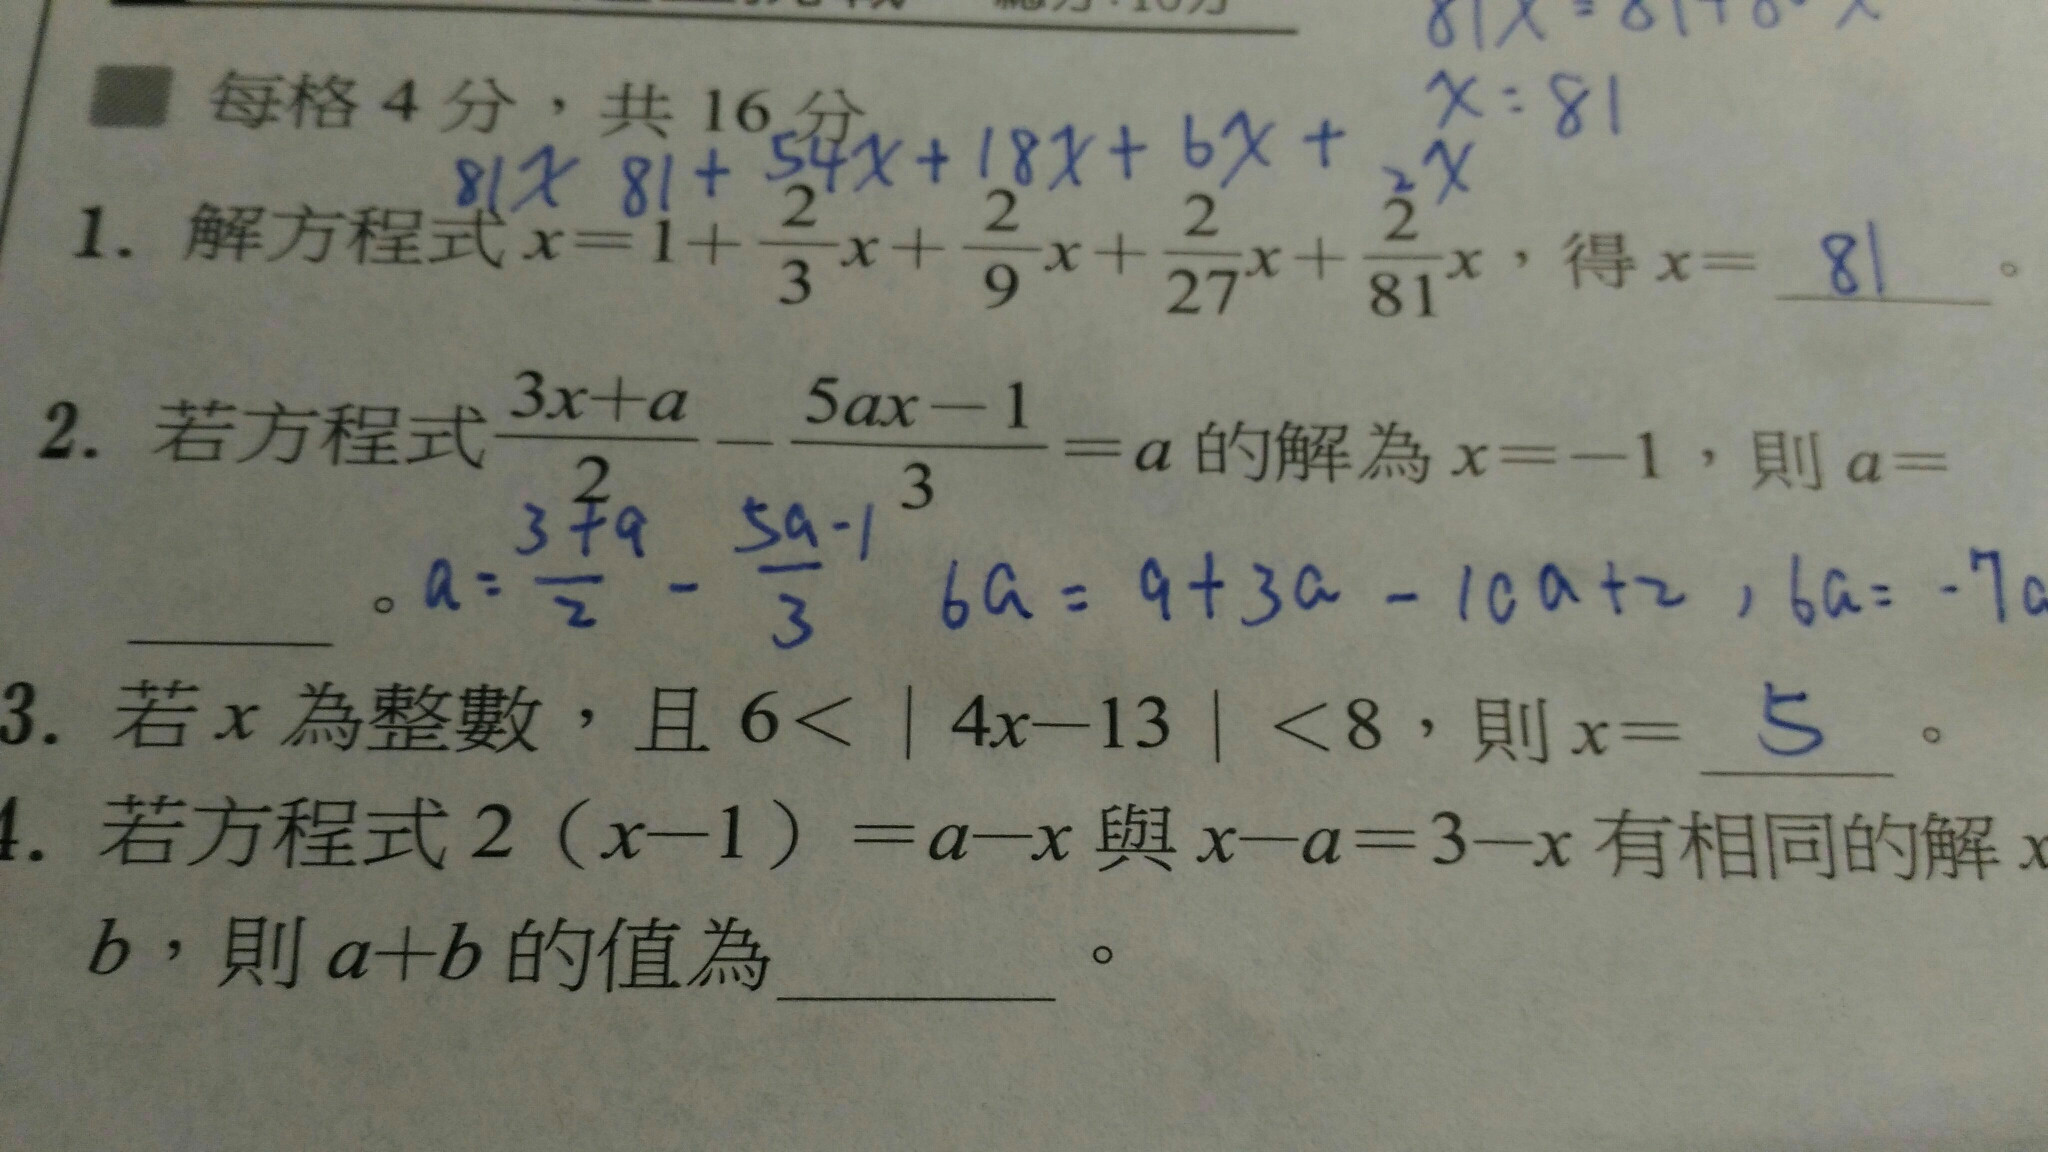 總分:16分
81x = 81 + 80x
x = 81
每格 4 分，共 16 分
81x 81 + 54x + 18x + 6x + 2x
1. 解方程式 x=1+2/3x+2/9x+2/27x+2/81x，得 x= 81 。
2. 若方程式 3x+a/2 - 5ax-1/3 =a 的解為 x=-1，則 a=
____。 a = 3+a/2 - 5a-1/3 6a = 9+3a - 10a+2 , 6a = -7a
3. 若 x 為整數，且 6<｜4x-13｜<8，則 x= 5 。
4. 若方程式 2（x-1）=a-x 與 x-a=3-x 有相同的解 x
b，則 a+b 的值為____。